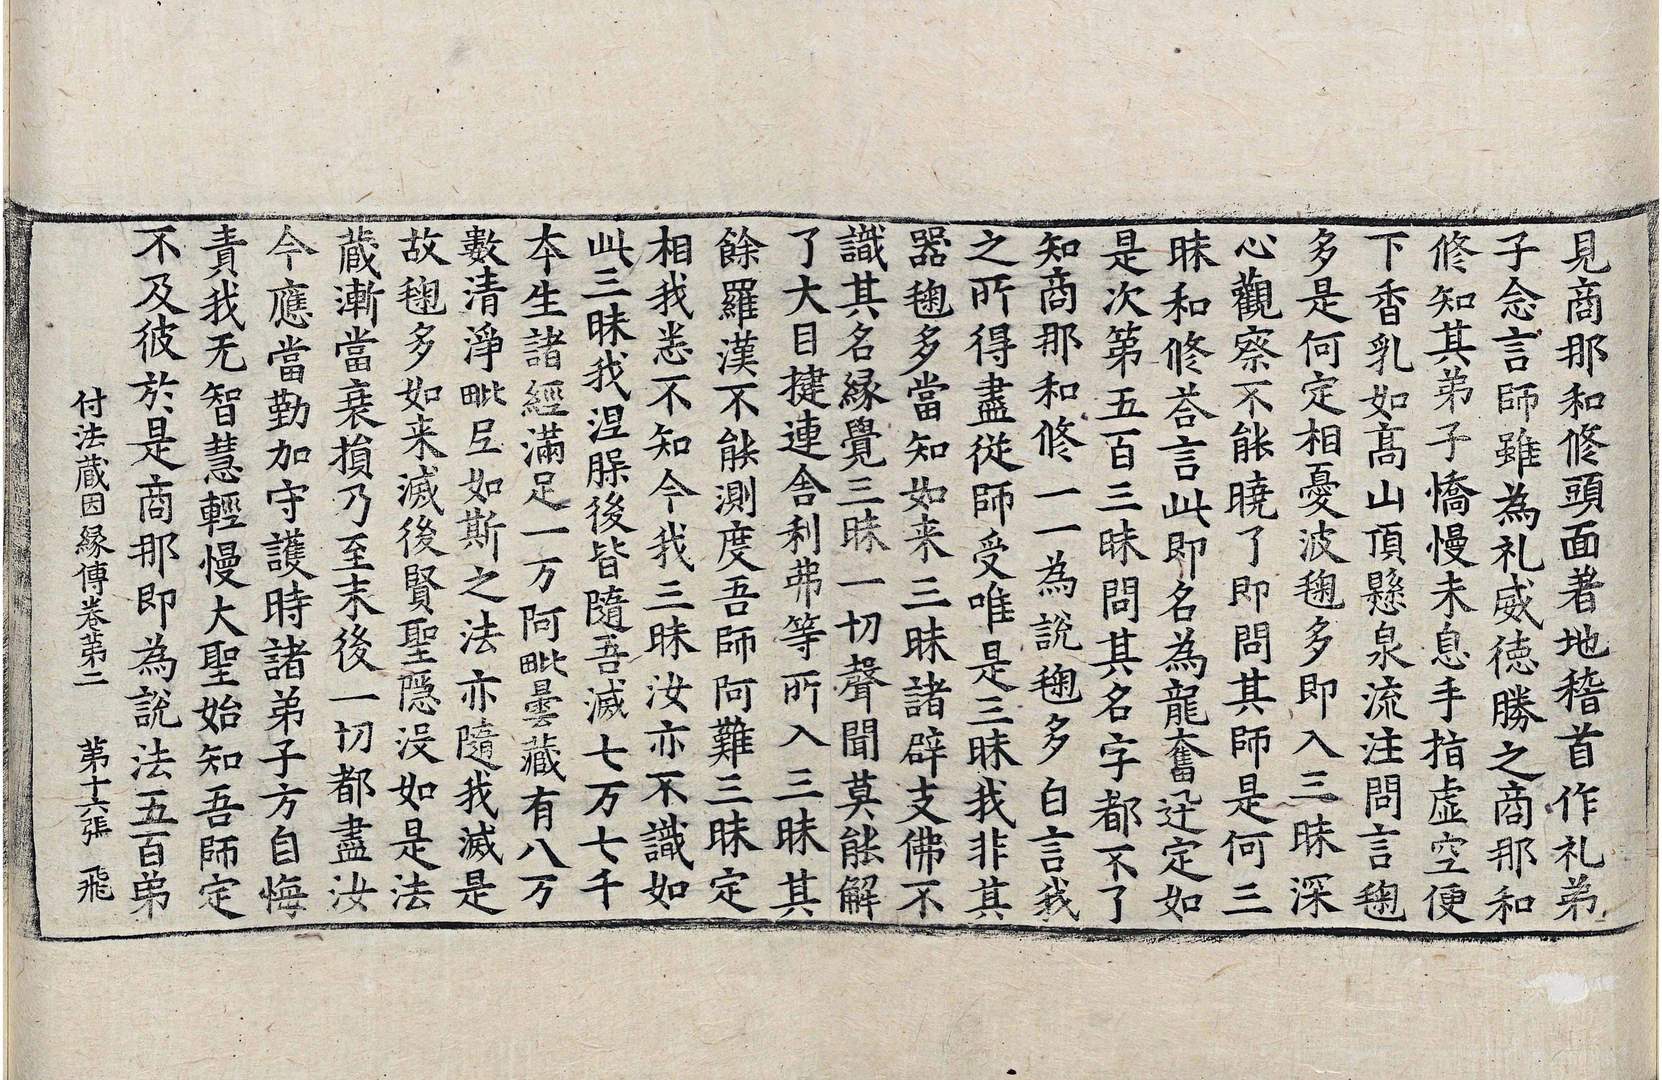 見商那和修頭面著地稽首作礼弟
子念言師雖為礼威徳勝之商那和
修知其弟子憍慢未息手指虚空便
下香乳如髙山頂懸泉流注問言毱
多是何定相憂波毱多即入三昧深
心觀察不能曉了即問其師是何三
昧和修荅言此即名為龍奮迅定如
是次第五百三昧問其名字都不了
知商那和修一一為說毱多白言我
之所得盡從師受唯是三昧我非其
器毱多當知如来三昧諸辟支佛不
識其名縁覺三昧一切聲聞莫能解
了大目揵連舎利弗等所入三昧其
餘羅漢不能測度吾師阿難三昧定
相我悉不知今我三昧汝亦不識如
此三昧我涅槃後皆隨吾滅七万七千
本生諸經滿足一万阿毗曇藏有八万
數清淨毗尼如斯之法亦隨我滅是
故毱多如来滅後賢聖隠没如是法
蔵漸當衰損乃至末後一切都盡汝
今應當勤加守護時諸弟子方自悔
責我无智慧輕慢大聖始知吾師定
不及彼於是商那即為説法五百弟
付法蔵因縁傳卷苐二　苐十六張　飛